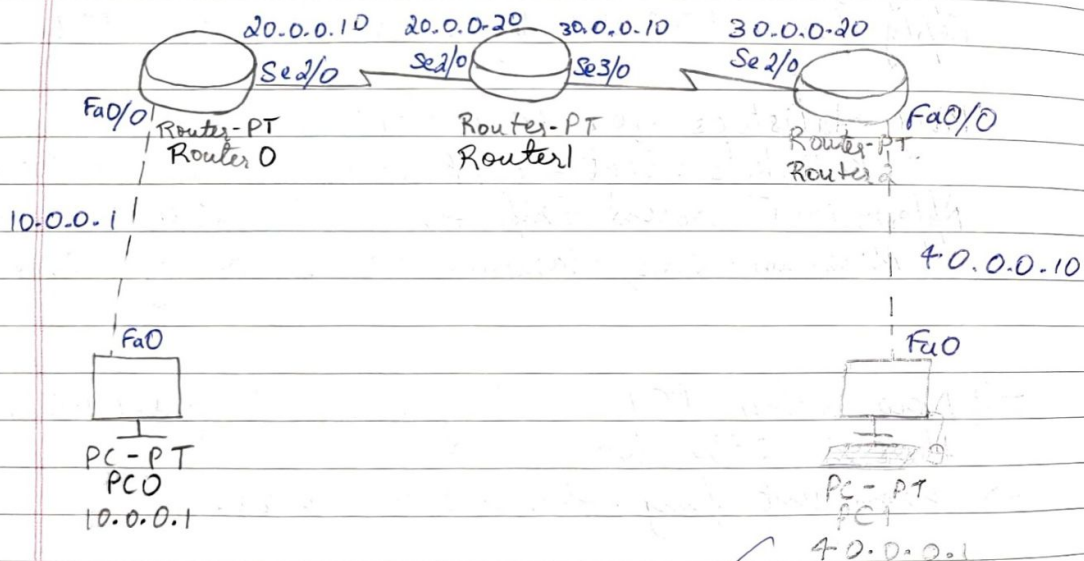 20.0.0.10 20.0.0.20 30.0.0.10 30.0.0.20
Se2/0 Se2/0 Se3/0 Se2/0
Fa0/0 Fa0/0
Router-PT Router-PT Router-PT
Router0 Router1 Router2
10.0.0.1
40.0.0.10
Fa0 Fa0
PC-PT PC-PT
PC0 PC1
10.0.0.1 40.0.0.1